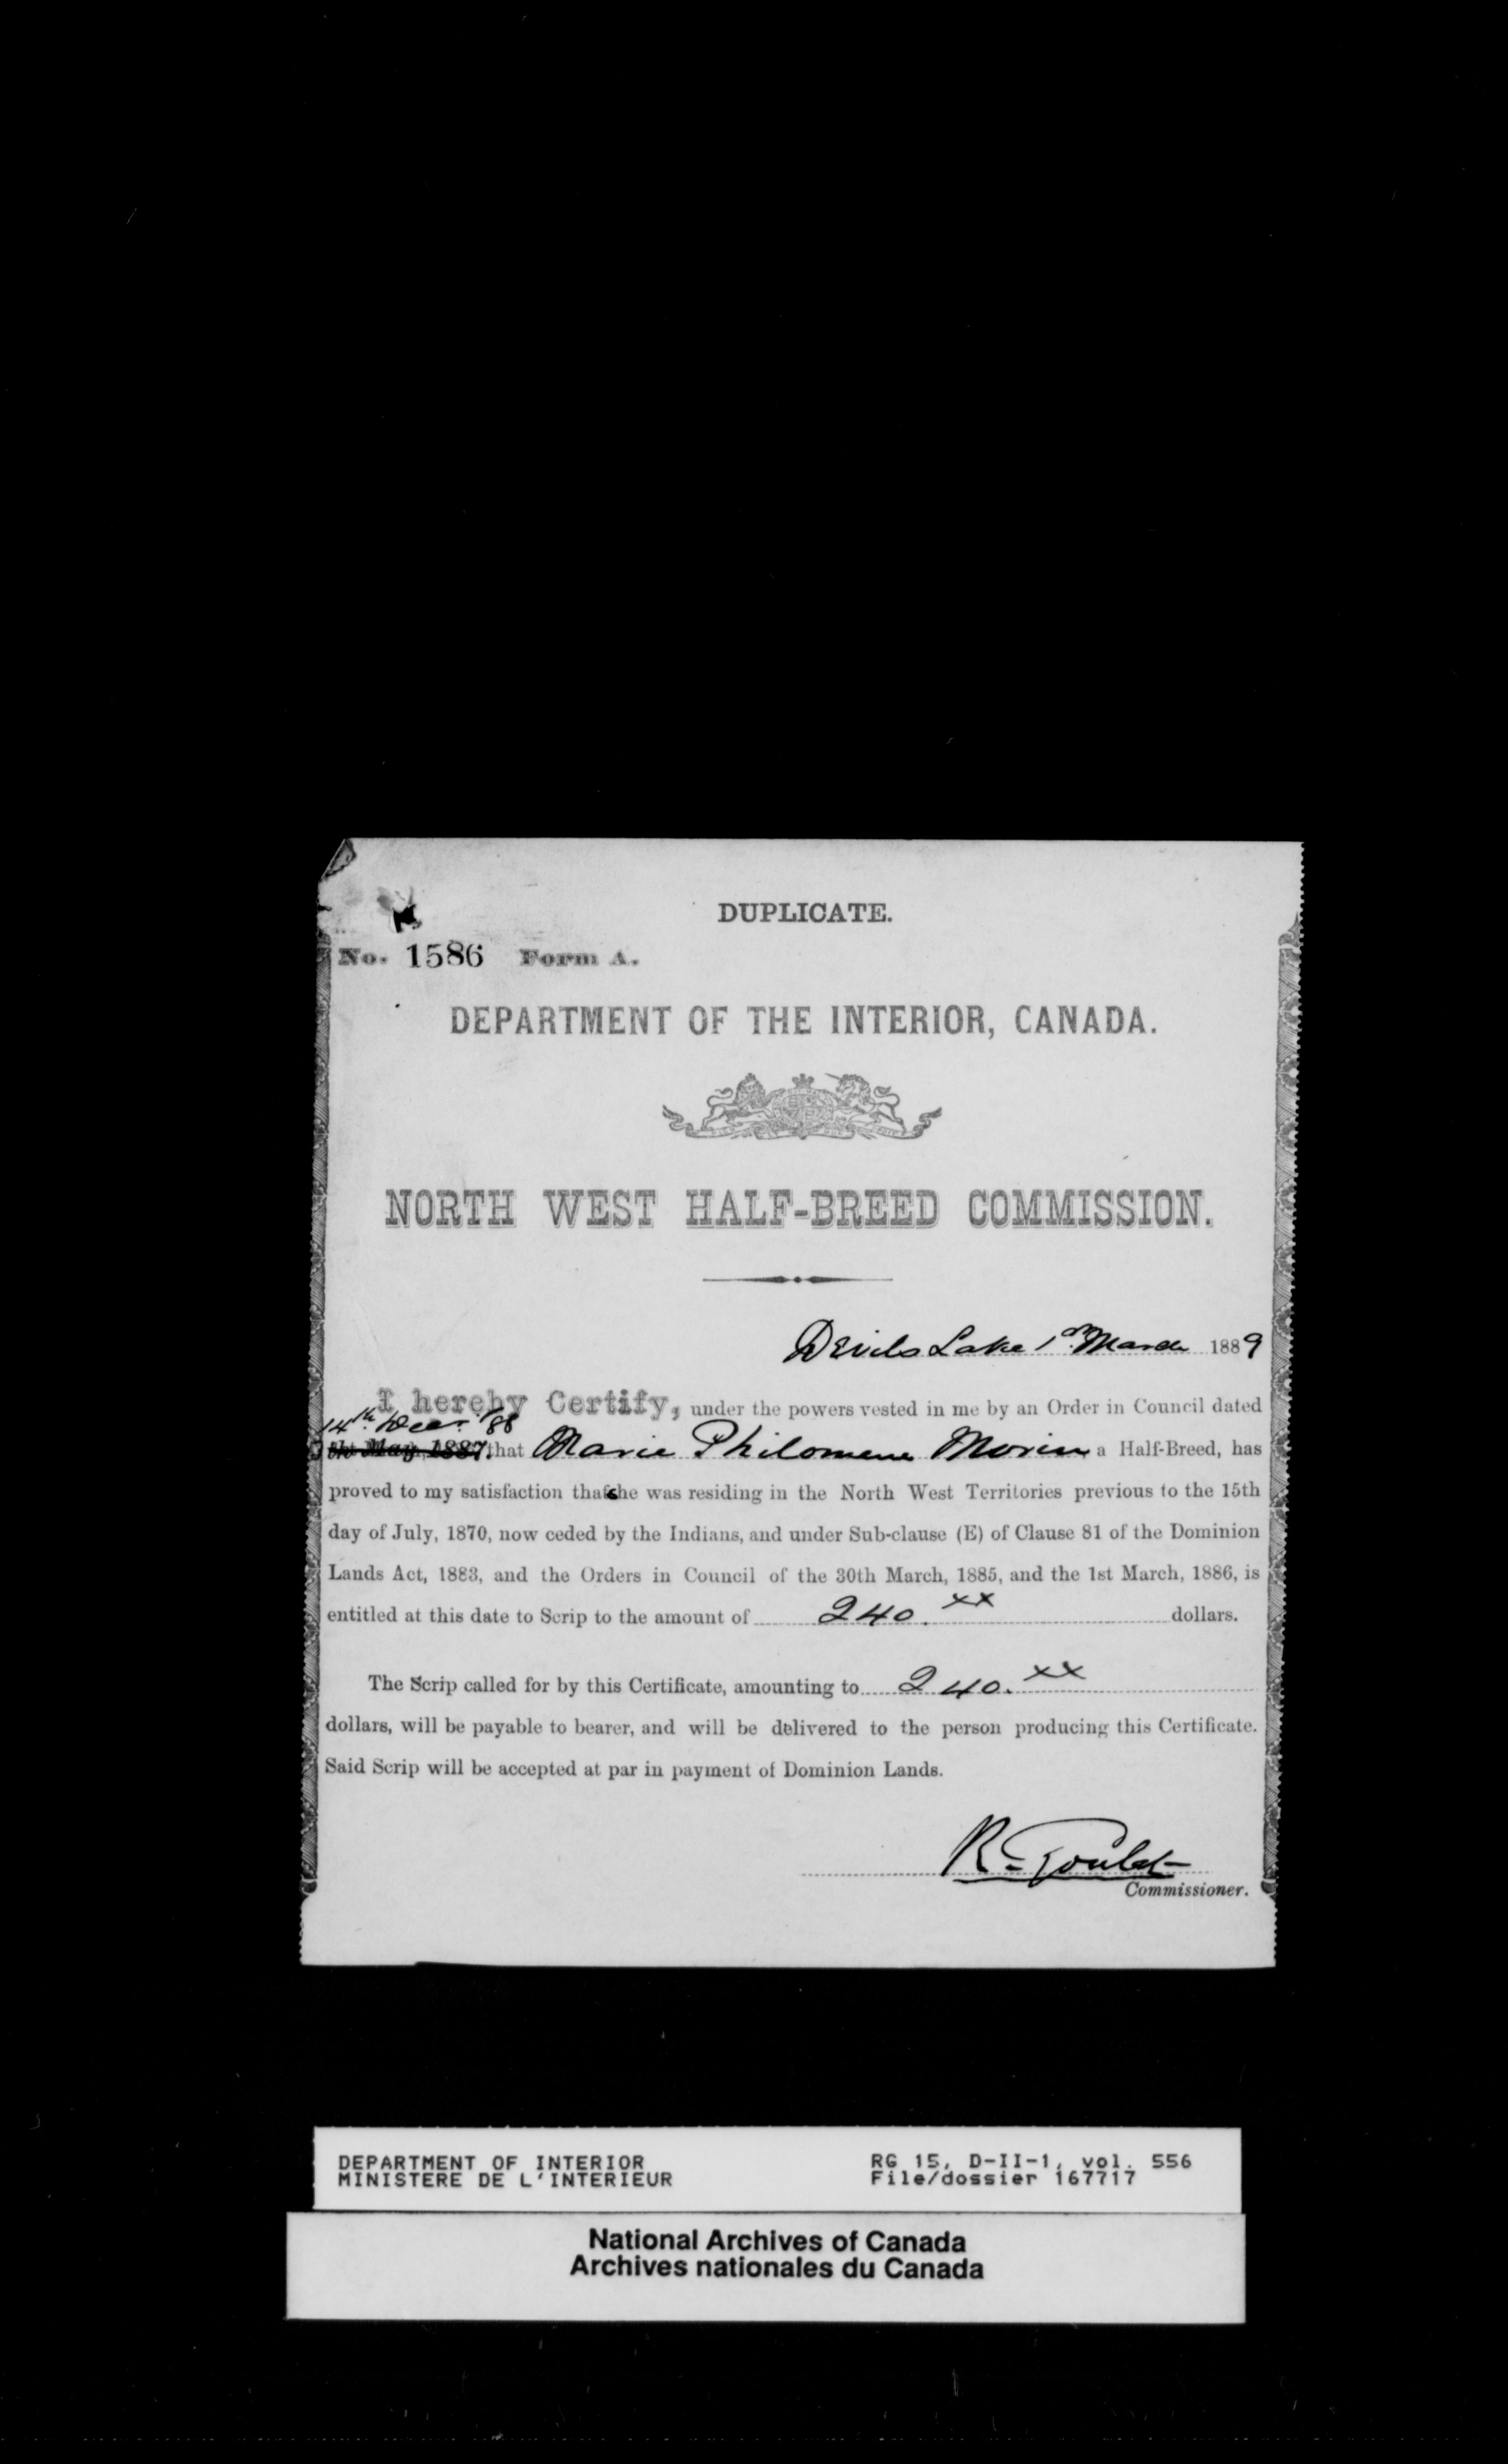 DUPLICATE.
No. 1586 Form A.
DEPARTMENT OF THE INTERIOR, CANADA.
NORTH WEST HALF-BREED COMMISSION.
Devils Lake 1st March 1889
I hereby Certify, under the powers vested in me by an Order in Council dated
14th Decr. /88
May, 1887, that Marie Philomene Morin a Half-Breed, has
proved to my satisfaction that she was residing in the North West Territories previous to the 15th
day of July, 1870, now ceded by the Indians, and under Sub-clause (E) of Clause 81 of the Dominion
Lands Act, 1883, and the Orders in Council of the 30th March, 1885, and the 1st March, 1886, is
entitled at this date to Scrip to the amount of 240.xx dollars.
The Scrip called for by this Certificate, amounting to 240.xx
dollars, will be payable to bearer, and will be delivered to the person producing this Certificate.
Said Scrip will be accepted at par in payment of Dominion Lands.
R. Goulet
Commissioner.
DEPARTMENT OF INTERIOR RG 15, D-II-1, vol. 556
MINISTERE DE L'INTERIEUR File/dossier 167717
National Archives of Canada
Archives nationales du Canada